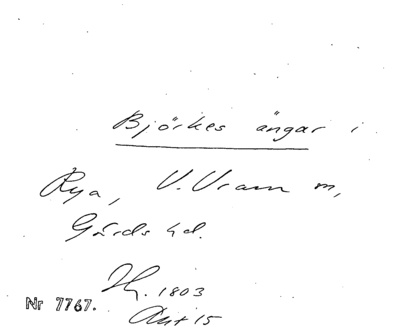 Björkes ängar i
Rya, V. Vram m,
Gärds hd.
Hy. 1803
Nr 7767.
Akt 15